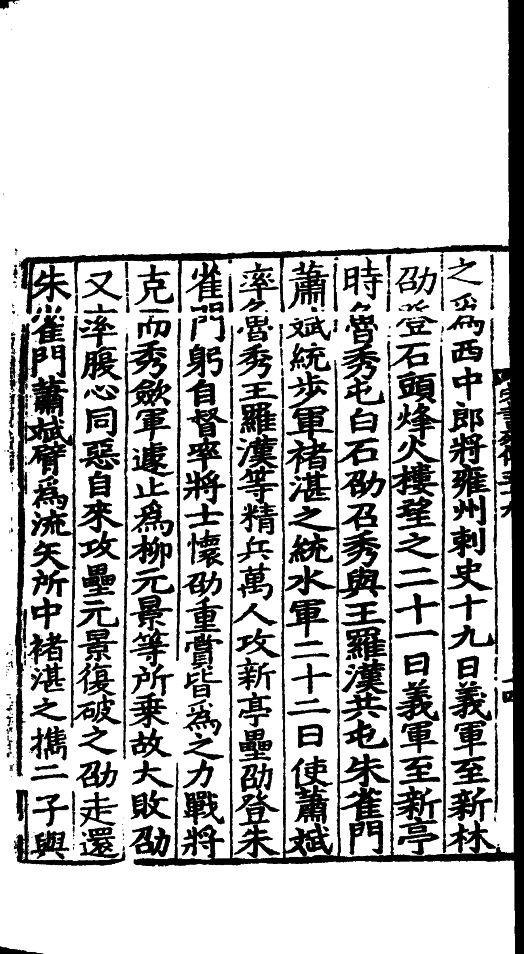 之爲西中郎將雍州刺史十九日義軍至新林
劭登石頭烽火樓望之二十一日義軍至新亭
時魯秀屯白石劭召秀與王羅漢共屯朱雀門
蕭斌統步軍褚湛之統水軍二十二日使蕭斌
率魯秀王羅漢等精兵萬人攻新亭壘劭登朱
雀門躬自督率將士懷劭重賞皆爲之力戰將
克而秀斂軍遽止爲柳元景等所乗故大敗劭
又率腹心同惡自來攻壘元景復破之劭走還
朱雀門蕭斌臂爲流矢所中褚湛之攜二子與